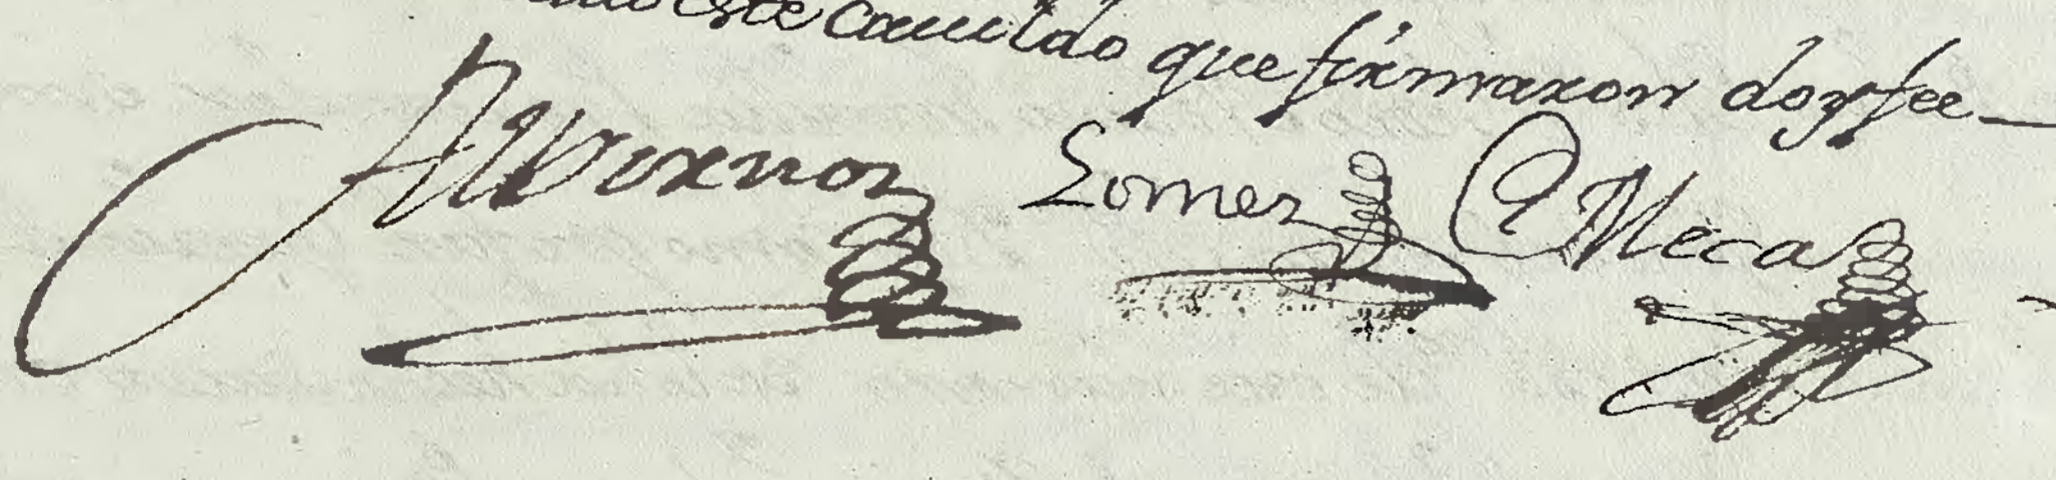 este cauildo que firmaron doy fee
Albornoz Gomez Meca